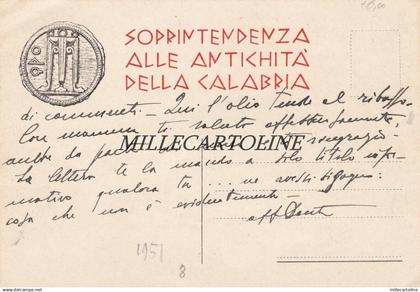 15,00
SOPRINTENDENZA
ALLE ANTICHITÀ
DELLA CALABRIA
ϘΡΟ
di commenti. - Qui l'olio tende al ribasso.
Con mamma ti saluto affettuosamente,
anche da parte
MILLECARTOLINE
La lettera te la mando a solo titolo infor-
mativo qualora tu ... ne avessi bisogno:
cosa che non è evidentemente -
aff Dante
1951
8